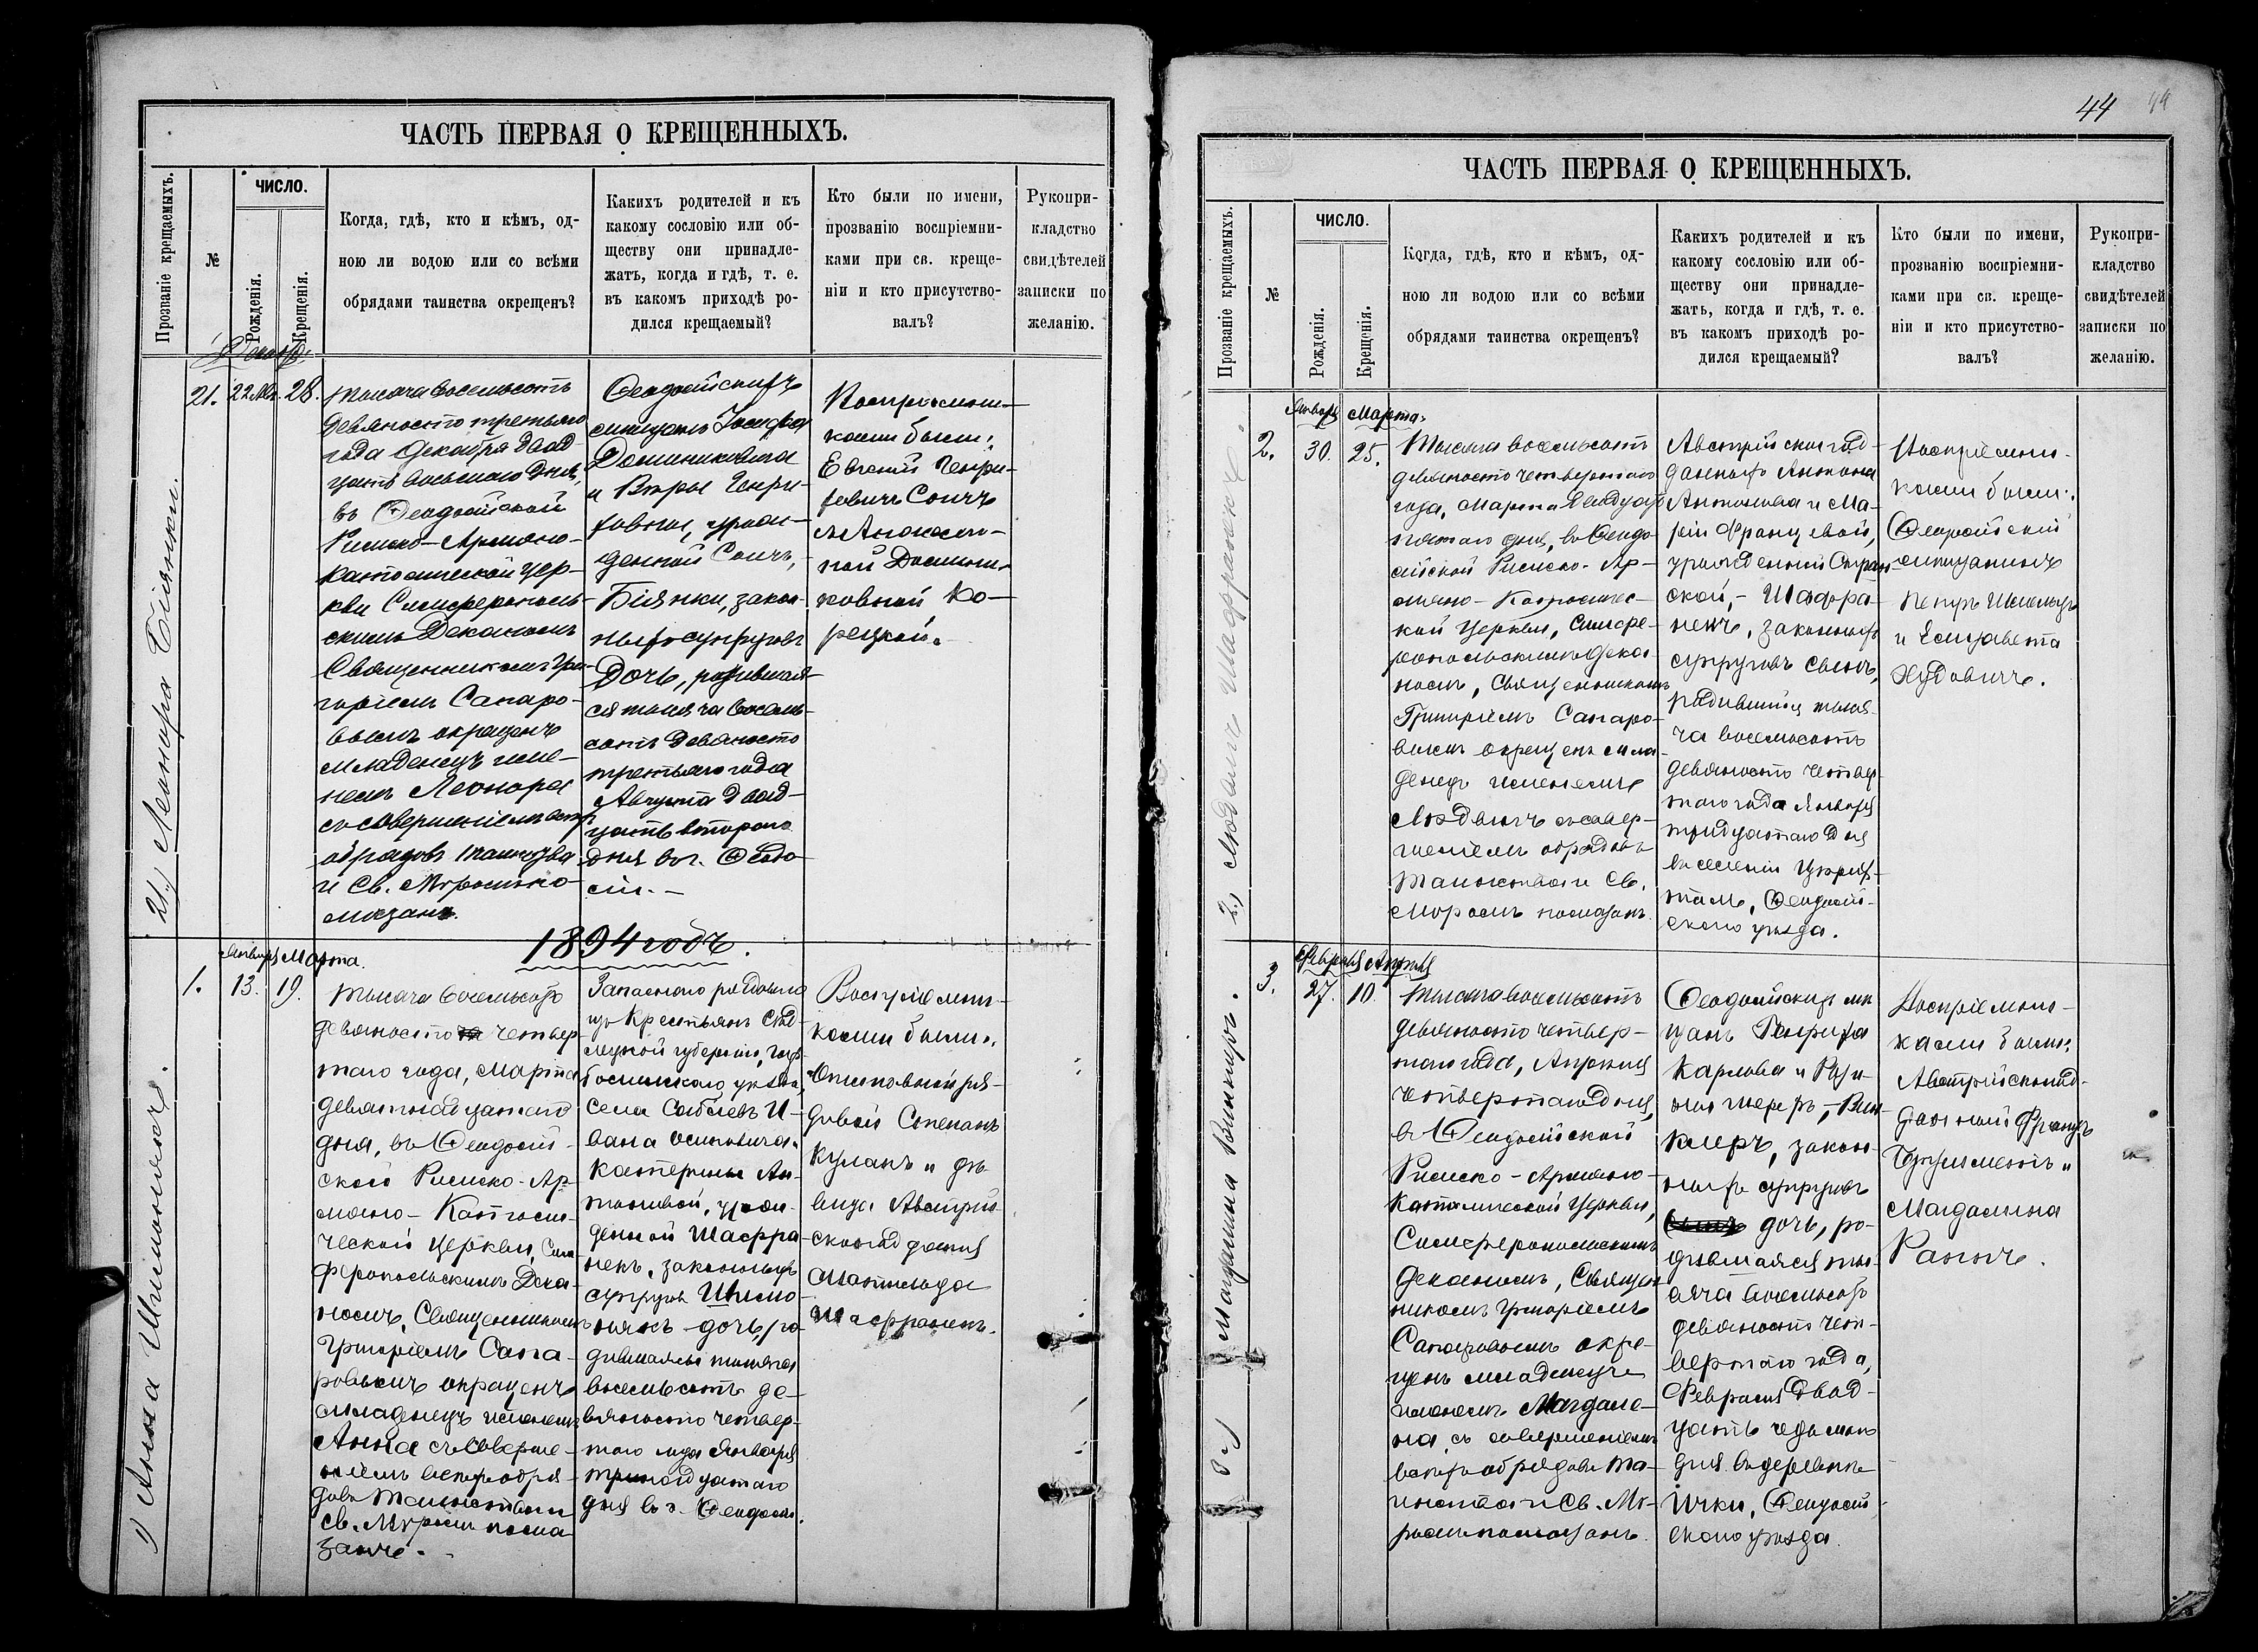 ЧАСТЬ ПЕРВАЯ О КРЕЩЕННЫХЪ.
Прозваніе крещаемыхъ.
№
ЧИСЛО.
Рожденія.
Крещенія.
Когда, гдѣ, кто и кѣмъ, од-
ною ли водою или со всѣми
обрядами таинства окрещенъ?
Какихъ родителей и къ
какому сословію или об-
ществу они принадле-
жатъ, когда и гдѣ, т. е.
въ какомъ приходѣ ро-
дился крещаемый?
Кто были по имени,
прозванію воспріемни-
ками при св. креще-
ніи и кто присутство-
валъ?
Рукопри-
кладство
свидѣтелей
записки по
желанію.
21.) Леонора Біянки.
21.
22 Авг.
28.
тысяча восемьсотъ
девяносто третьяго
года Декабря двад-
цать восьмаго дня,
въ Ѳеодосійской
Римско-Армяно-
Католической Цер-
кви Симферополь-
скимъ Деканомъ
Священникомъ Гри-
горіемъ Сапаро-
вымъ окрещенъ
младенецъ име-
немъ Леонора
съ совершеніемъ
обрядовъ таинства
и Св. Мѵромъ по-
мазанъ.
Ѳеодосійскихъ
мищанъ Іосифа
Доминиковича
и Вѣры Генри-
ховны, урож-
денной Сончъ,
Біянки, закон-
ныхъ супруговъ
Дочь, родившая-
ся тысяча восемь-
сотъ девяносто
третьяго года
Августа двад-
цать втораго
дня въ г. Ѳеодо-
сіи.-
Воспріемни-
ками были:
Евгеній Генри-
ховичъ Сончъ
Домини-
ковной Ко-
рецкой.
1894 годъ.
1) Анна Шимонякъ.
Января Марта.
1.
13.
19.
тысяча восемьсотъ
девяносто четвер-
таго года, Марта
девятнадцатаго
дня, въ Ѳеодосій-
ской Римско-Ар-
мяно-Католи-
ческой Церкви, Сим-
феропольскимъ Дека-
номъ, Священникомъ
Григоріемъ Сапа-
ровымъ окрещенъ
младенецъ именемъ
Анна съ соверше-
ніемъ всѣхъ обря-
довъ таинства и
Св. Мѵромъ пома-
занъ.-
Запаснаго рядоваго
изъ Крестьянъ
губерніи,
уѣзда,
села И-
вана Осиповича
Катерины Ан-
тоновой, урож-
денной Шафра-
некъ, законныхъ
супруговъ Шимо-
някъ дочь, ро-
дившаяся тысяча
восемьсотъ де-
вяносто четвер-
таго года Января
тринадцатаго
дня въ г. Ѳеодосіи.
Воспріемни-
ками были:
ря-
довой Степанъ
Куланъ и дѣ-
вица Австрій-
скоподданная
Матильда
Шафранекъ.
44
44
ЧАСТЬ ПЕРВАЯ О КРЕЩЕННЫХЪ.
Прозваніе крещаемыхъ.
№
ЧИСЛО.
Рожденія.
Крещенія.
Когда, гдѣ, кто и кѣмъ, од-
ною ли водою или со всѣми
обрядами таинства окрещенъ?
Какихъ родителей и къ
какому сословію или об-
ществу они принадле-
жатъ, когда и гдѣ, т. е.
въ какомъ приходѣ ро-
дился крещаемый?
Кто были по имени,
прозванію воспріемни-
ками при св. креще-
ніи и кто присутство-
валъ?
Рукопри-
кладство
свидѣтелей
записки по
желанію.
2.) Людвигъ Шафранекъ.
Января Марта.
2.
30.
25.
Тысяча восемьсотъ
девяносто четвертаго
года, Марта двадцать
пятаго дня, въ Ѳеодо-
сійской Римско-Ар-
мяно-Католичес-
кой Церкви, Симфе-
ропольскимъ Дека-
номъ, Священникомъ
Григоріемъ Сапаро-
вымъ окрещенъ мла-
денецъ именемъ
Людвигъ съ совер-
шеніемъ обрядовъ
таинства и Св.
Мѵромъ помазанъ.
Австрійскопод-
данныхъ Антона
Антонова и Ма-
ріи Францевой,
урожденной
ской,- Шафра-
некъ, законныхъ
супруговъ сынъ,
родившійся тыся-
ча восемьсотъ
девяносто четвер-
таго года Января
тридцатаго дня
въ селеніи Цюрих-
таль, Ѳеодосій-
скаго уѣзда.
Воспріемни-
ками были:
Ѳеодосійскій
мищанинъ
Петръ
и Елизавета
Худовичъ.
3.) Магдалина Винклеръ.
Февраля Апрѣля
3.
27.
10.
Тысяча восемьсотъ
девяносто четвер-
таго года, Апрѣля
четвертаго дня,
въ Ѳеодосійской
Римско-Армяно-
Католической Церкви,
Симферопольскимъ
Деканомъ, Священ-
никомъ Григоріемъ
Сапаровымъ окре-
щенъ младенецъ
именемъ Магдале-
на, съ совершеніемъ
всѣхъ обрядовъ та-
инства и Св. Мѵ-
ромъ помазанъ.
Ѳеодосійскихъ мѣ-
щанъ Генриха
Карлова и Рози-
ны Шерръ,-Вин-
клеръ, закон-
ныхъ супруговъ
дочь, ро-
дившаяся ты-
сяча восемьсотъ
девяносто чет-
вертаго года,
Февраля двад-
цать седьмого
дня въ деревнѣ
Ички, Ѳеодосій-
скаго уѣзда.
Воспріемни-
ками были:
Австрійскопод-
данный Францъ
и
Магдалина